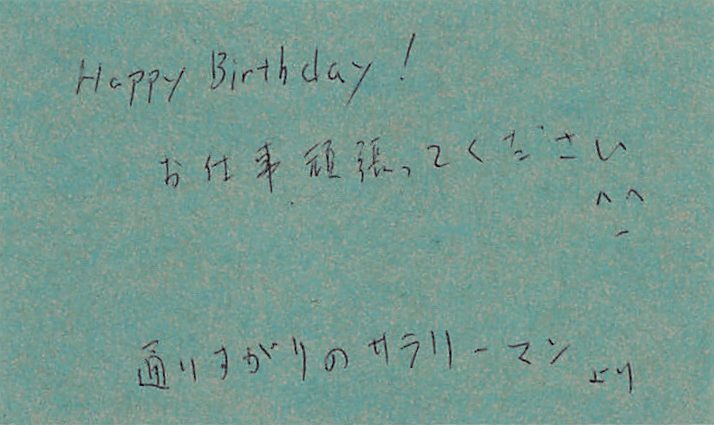 Happy Birthday!
お仕事頑張ってください
^^
通りすがりのサラリーマンより